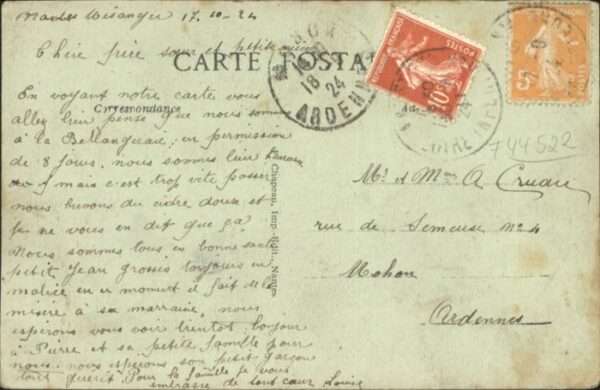 17-10-24
Chère frère sœur et petite nièce
CARTE POSTALE
Correspondance
En voyant notre carte vous
allez bien pensé que nous sommes
à la Bellangerai en permission
de 8 jours, nous sommes bien heureux
mais c'est trop vite passer
nous buvons du cidre doux et
je ne vous en dit que ça
Nous sommes tous en bonne santé
petit Jean grossis toujours en
malice en ce moment il fait des
misère à sa marraine, nous
espérons vous voir bientot bonjour
à Pierre et sa petite famille pour
nous nous espérons son petit garçon
tout guérit Pour la famille je vous
embrasse de tout cœur Louise
Chapeau, Imp.-Edit., Nantes
18
24
ARDENNES
POSTES
10c
5c
744522
Mr et Mme A Crudu
rue de Semeuse No 4
Mohon
Ardennes